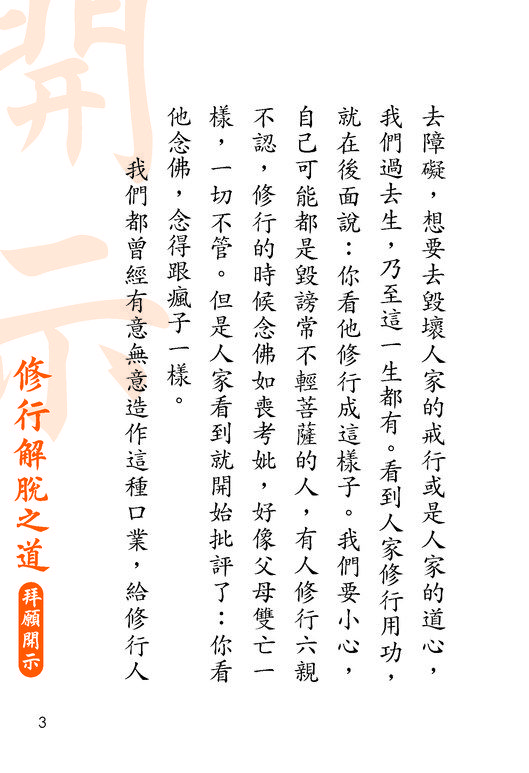 開示
去障礙，想要去毀壞人家的戒行或是人家的道心，
我們過去生，乃至這一生都有。看到人家修行用功，
就在後面說：你看他修行成這樣子。我們要小心，
自己可能都是毀謗常不輕菩薩的人，有人修行六親
不認，修行的時候念佛如喪考妣，好像父母雙亡一
樣，一切不管。但是人家看到就開始批評了：你看
他念佛，念得跟瘋子一樣。
我們都曾經有意無意造作這種口業，給修行人
修行解脫之道
拜願開示
3